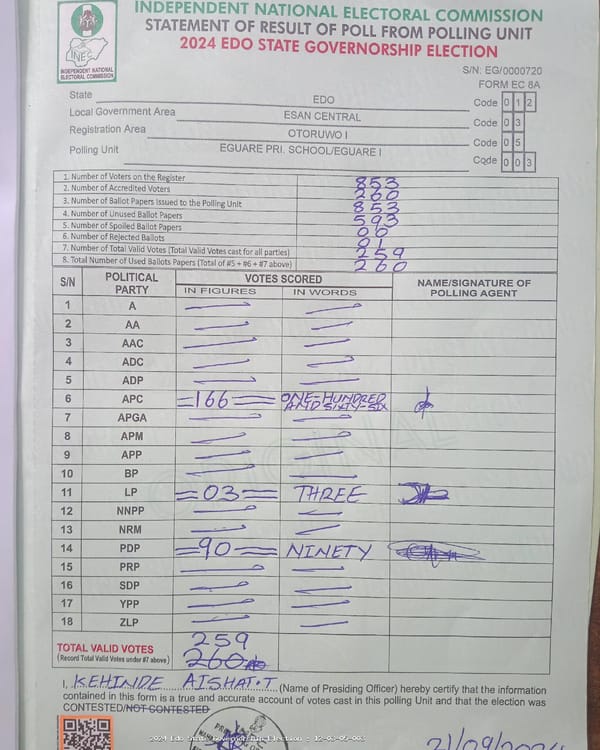 INDEPENDENT NATIONAL ELECTORAL COMMISSION
STATEMENT OF RESULT OF POLL FROM POLLING UNIT
2024 EDO STATE GOVERNORSHIP ELECTION
INEC
INDEPENDENT NATIONAL
ELECTORAL COMMISSION
S/N: EG/0000720
FORM EC 8A
State EDO Code 0 1 2
Local Government Area ESAN CENTRAL Code 0 3
Registration Area OTORUWO I Code 0 5
Polling Unit EGUARE PRI. SCHOOL/EGUARE I Code 0 0 3
1. Number of Voters on the Register 853
2. Number of Accredited Voters 260
3. Number of Ballot Papers Issued to the Polling Unit 853
4. Number of Unused Ballot Papers 593
5. Number of Spoiled Ballot Papers 00
6. Number of Rejected Ballots 01
7. Number of Total Valid Votes (Total Valid Votes cast for all parties) 259
8. Total Number of Used Ballots Papers (Total of #5 + #6 + #7 above) 260
S/N POLITICAL PARTY VOTES SCORED NAME/SIGNATURE OF POLLING AGENT
IN FIGURES IN WORDS
1 A
2 AA
3 AAC
4 ADC
5 ADP
6 APC =166= ONE-HUNDRED AND SIXTY-SIX
7 APGA
8 APM
9 APP
10 BP
11 LP =03= THREE
12 NNPP
13 NRM
14 PDP =90= NINETY
15 PRP
16 SDP
17 YPP
18 ZLP
TOTAL VALID VOTES 259
(Record Total Valid Votes under #7 above) 260
I, KEHINDE AISHAT.T (Name of Presiding Officer) hereby certify that the information
contained in this form is a true and accurate account of votes cast in this polling Unit and that the election was
CONTESTED/NOT CONTESTED
2024 Edo State Governorship Election - 12-03-05-003